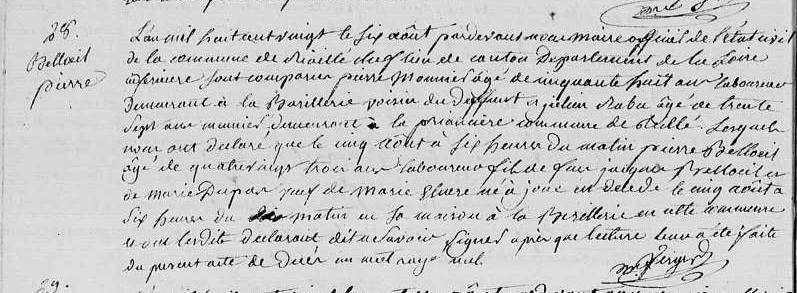 28.
Belloeil
pierre
L'an mil huit cent vingt le six août pardevant nous maire officiel de l'état civil
de la commune de Riaillé chef lieu de canton Departement de la Loire
inferieure sont comparus pierre Monnier âgé de cinquante huit ans laboureur
demeurant à la Barillerie voisin du deffunt et julien Rabu âgé de trente
sept ans meunier demeurant à la commune de Riaillé. Lesquels
nous ont declaré que le cinq Août à six heures du matin pierre Belloeil
âgé de quatrevingt trois ans laboureur fils de feu jacques Belloeil et
de Marie Dupas veuf de Marie né à joué en decedé le cinq août à
six heures du matin en sa maison à la Barillerie en cette commune
et ont lesdits declarant dit ne savoir signer après que lecture leur a été faite
du present acte de décès un mot rayé nul.
29.